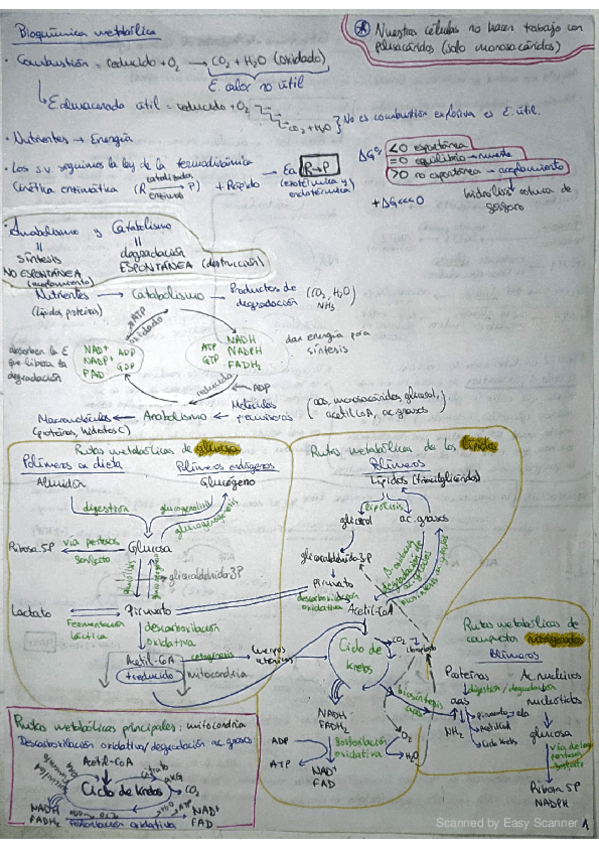 Bioquímica metabólica
* Nuestras células no hacen trabajo con
polisacáridos (solo monosacáridos)
• Combustión = reducido + O₂ → CO₂ + H₂O (oxidado)
E calor no útil
E almacenada útil = reducido + O₂
CO₂ + H₂O } No es combustión explosiva es E. útil.
• Nutrientes → Energía
• Los s.v. seguimos la ley de la termodinámica
Cinética enzimática (R → P) + Rápido → Ea R→P
(exotérmica y
endotérmica)
ΔG
<0 espontánea
=0 equilibrio → muerte
>0 no espontánea → acoplamiento
+ΔG<<<0
hidrólisis
• Anabolismo y Catabolismo
síntesis
degradación
NO ESPONTÁNEA
(acoplamiento)
ESPONTÁNEA (destrucción)
Nutrientes → Catabolismo → Productos de
degradación (CO₂, H₂O)
NH₃
(lípidos, proteínas)
ATP
oxidado
absorben la E
que libera la
degradación
NAD⁺ ADP
NADP⁺ GDP
FAD
ATP
GTP
NADH
NADPH
FADH₂
dan energía para
síntesis
reducido
ADP
Macromoléculas ← Anabolismo ← Moléculas
precursoras
(proteínas, hidratos C)
(aas, monosacáridos, glicerol,
acetil CoA, ac. grasos)
Rutas metabólicas de glucosa
Polímeros en dieta
Polímeros endógenos
Almidón
Glucógeno
digestión
glucogenolisis
glucogenogénesis
Ribosa 5P ← vía pentosas
fosfato
Glucosa
gliceraldehído 3P
Lactato
Piruvato
Fermentación
láctica
descarboxilación
oxidativa
Acetil-CoA
cetogénesis
Cuerpos
cetónicos
+ reducido
mitocondria
Rutas metabólicas de los lípidos
Polímeros
Lípidos (triacilglicéridos)
lipolisis
glicerol
ac. grasos
gliceraldehído 3P
piruvato
descarboxilación
oxidativa
Acetil-CoA
Ciclo de
Krebs
CO₂
NADH
FADH₂
O₂
H₂O
ADP
ATP
fosforilación
oxidativa
NAD⁺
FAD
biosíntesis
Rutas metabólicas de
compuestos nitrogenados
Polímeros
Proteínas
Ac. nucleicos
digestión/degradación
aas
nucleótidos
NH₃
piruvato
Acetil CoA
Ciclo Krebs
glucosa
vía de las
pentosas
fosfato
Ribosa 5P
NADPH
Rutas metabólicas principales: mitocondria
Descarboxilación oxidativa/degradación ac. grasos:
Acetil-CoA
citrato
αKG
CO₂
Ciclo de Krebs
NADH
FADH₂
ADP
H₂O
ATP
NAD⁺
FAD
Fosforilación oxidativa
Scanned by Easy Scanner
1